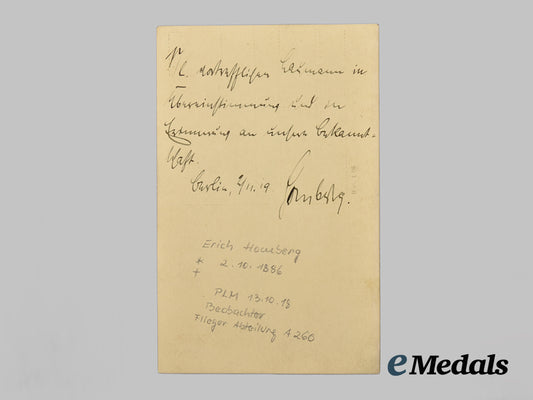 vortrefflichen Hamann in
Übereinstimmung und in
Erinnerung an unsere Bekannt-
schaft.
Berlin, 2/11.19. Homberg.
Erich Homberg
* 2.10.1886
+
PLM 13.10.18
Beobachter
Flieger Abteilung A 260
eMedals